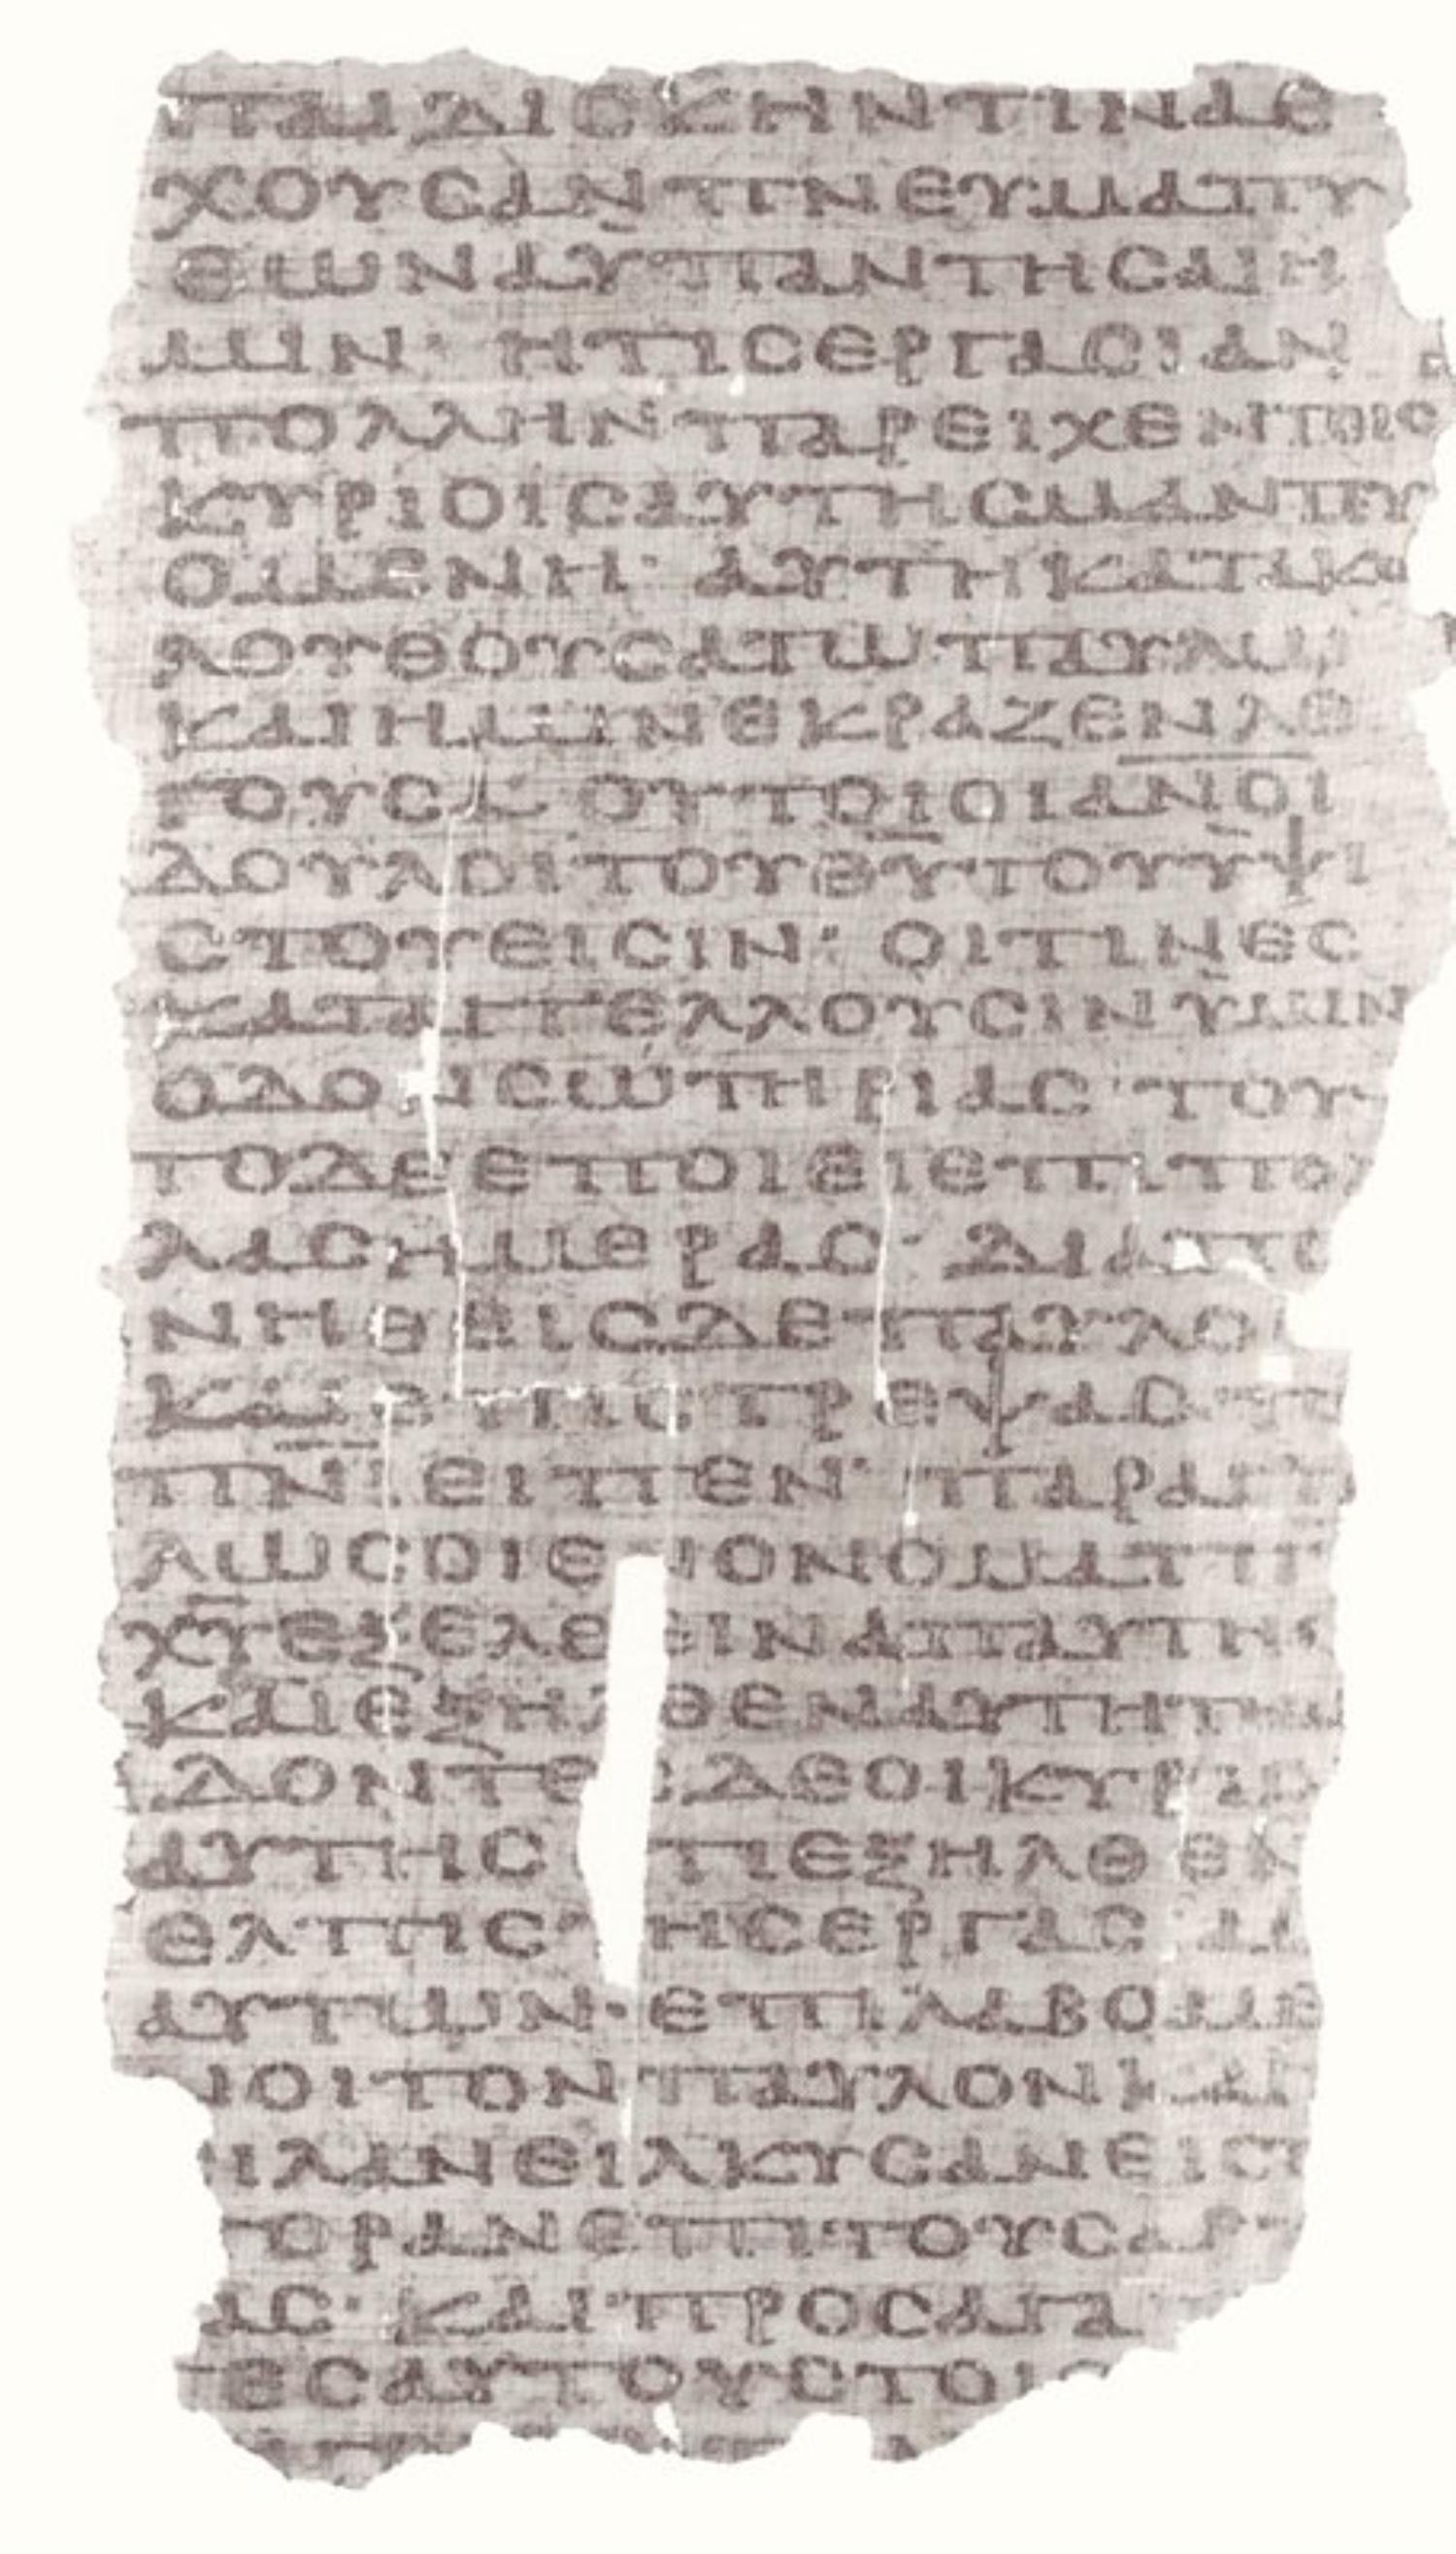 ΠΑΙΔΙϹΚΗΝΤΙΝΑΕ
ΧΟΥϹΑΝΠΝΕΥΜΑΠΥ
ΘΩΝΑΥΠΑΝΤΗϹΑΙΗ
ΜΙΝ· ΗΤΙϹΕΡΓΑϹΙΑΝ
ΠΟΛΛΗΝΠΑΡΕΙΧΕΝΤΟΙϹ
ΚΥΡΙΟΙϹΑΥΤΗϹΜΑΝΤΕΥ
ΟΜΕΝΗ· ΑΥΤΗΚΑΤΑΚΟ
ΛΟΥΘΟΥϹΑΤΩΠΑΥΛΩ
ΚΑΙΗΜΙΝΕΚΡΑΖΕΝΛΕ
ΓΟΥϹΑ ΟΥΤΟΙΟΙΑΝΟΙ
ΔΟΥΛΟΙΤΟΥΘΥΤΟΥΥΨΙ
ϹΤΟΥΕΙϹΙΝ· ΟΙΤΙΝΕϹ
ΚΑΤΑΓΓΕΛΛΟΥϹΙΝΥΜΙΝ
ΟΔΟΝϹΩΤΗΡΙΑϹ· ΤΟΥ
ΤΟΔΕΕΠΟΙΕΙΕΠΙΠΟΛ
ΛΑϹΗΜΕΡΑϹ· ΔΙΑΠΟ
ΝΗΘΕΙϹΔΕΠΑΥΛΟ
ΚΑΙΕΠΙϹΤΡΕΨΑϹ ΤΩ
ΠΝΙ ΕΙΠΕΝ· ΠΑΡΑΓΓ
ΛΩϹΟΙΕΝΟΝΟΜΑΤΙΙ
ΧΥΕΞΕΛΘΕΙΝΑΠΑΥΤΗϹ
ΚΑΙΕΞΗΛΘΕΝΑΥΤΗΤΗ
ΔΟΝΤΕϹΔΕΟΙΚΥΡΙΟ
ΑΥΤΗϹ ΤΙΕΞΗΛΘΕΝ
ΕΛΠΙϹΤΗϹΕΡΓΑϹΙΑ
ΑΥΤΩΝ· ΕΠΙΛΑΒΟΜΕ
ΝΟΙΤΟΝΠΑΥΛΟΝΚΑΙ
ΙΛΑΝΕΙΛΚΥϹΑΝΕΙϹΤ
ΟΡΑΝΕΠΙΤΟΥϹΑΡ
ΑϹ· ΚΑΙΠΡΟϹΑΓΑ
ΤΕϹΑΥΤΟΥϹΤΟΙϹ